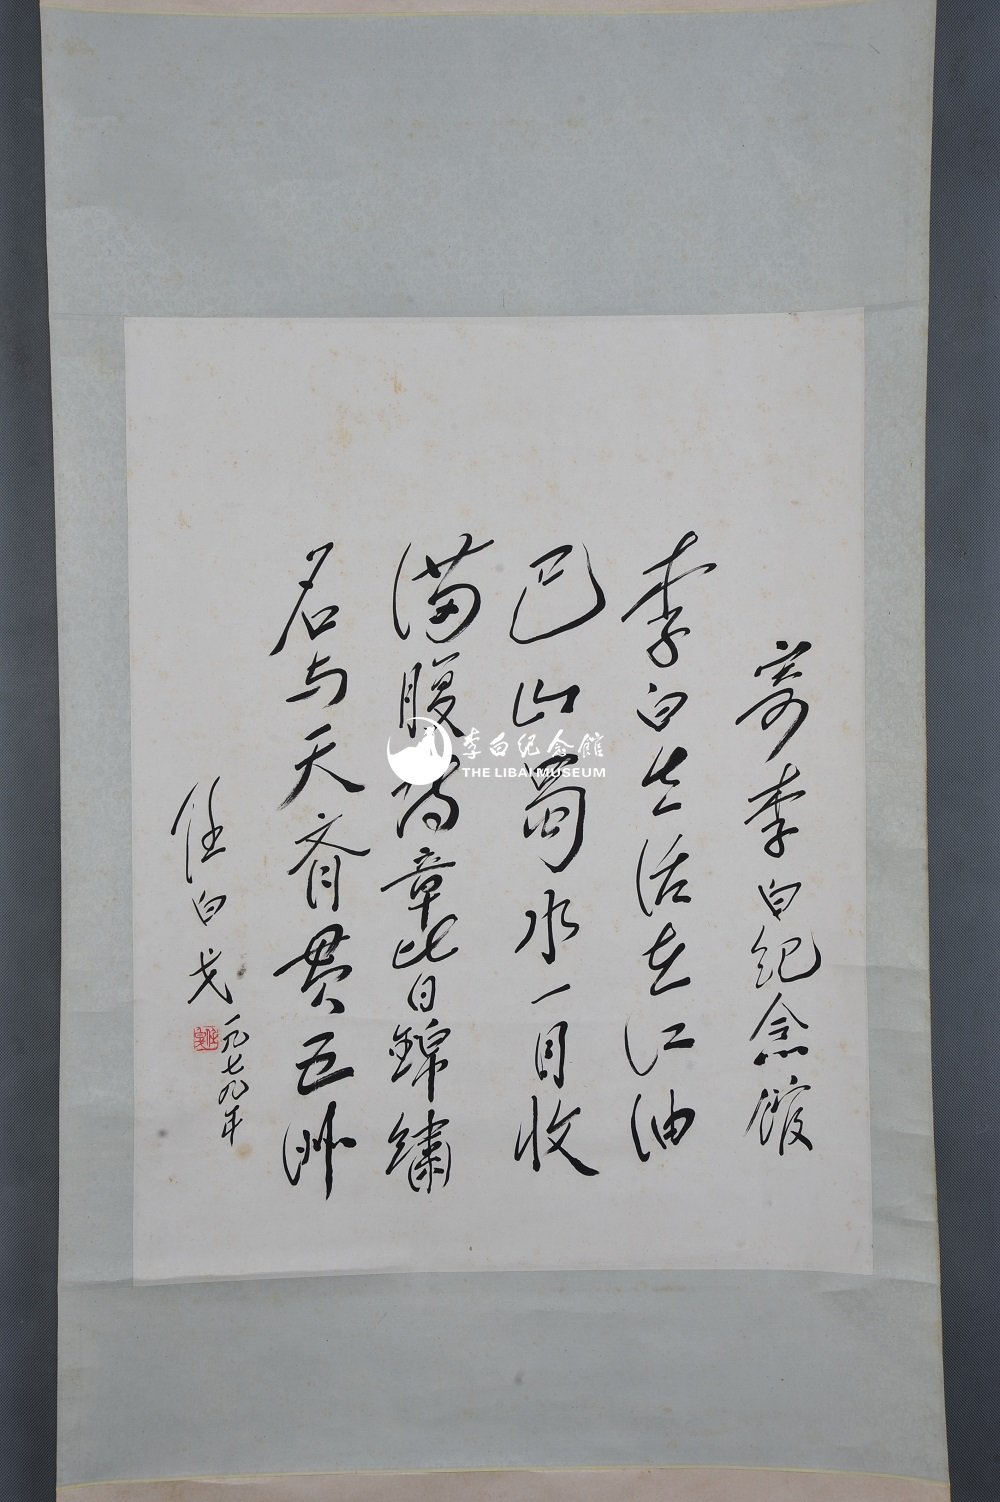 寄李白纪念馆
李白生活在江油
巴山蜀水一目收
满腹诗章皆锦绣
名与天齐贯五洲
任白戈
一九七九年
李白纪念館
THE LIBAI MUSEUM